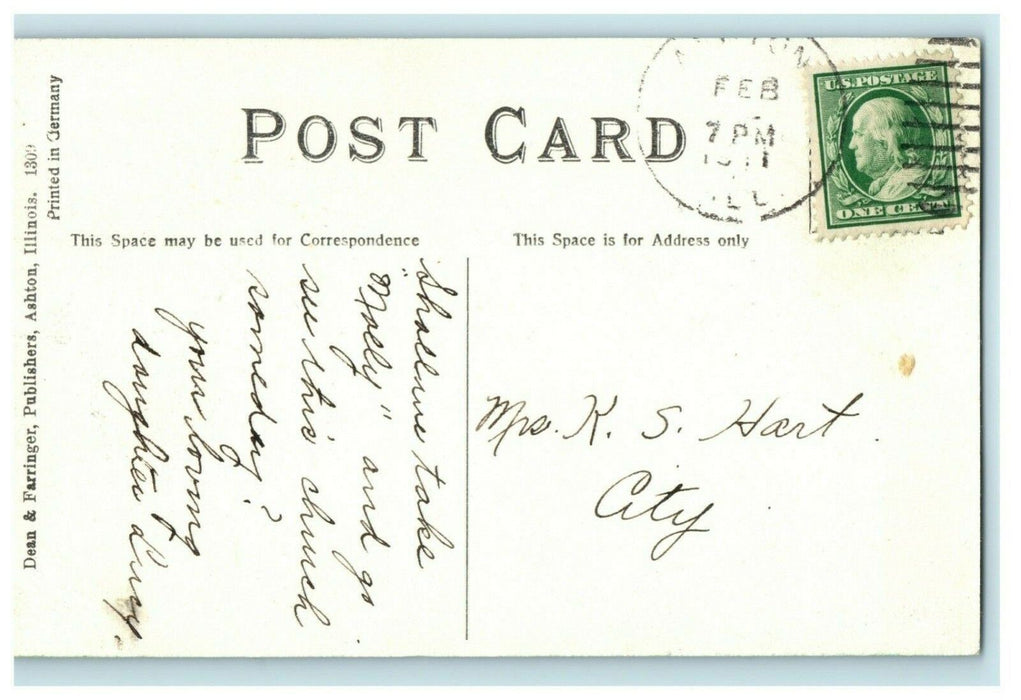 POST CARD
FEB
7 PM
1911
ILL.
U.S. POSTAGE
ONE CENT
Dean & Farringer, Publishers, Ashton, Illinois. 1309
Printed in Germany
This Space may be used for Correspondence
This Space is for Address only
Shall we take
"Molly" and go
see this church
someday?
your loving
daughter
Mrs. K. S. Hart.
City